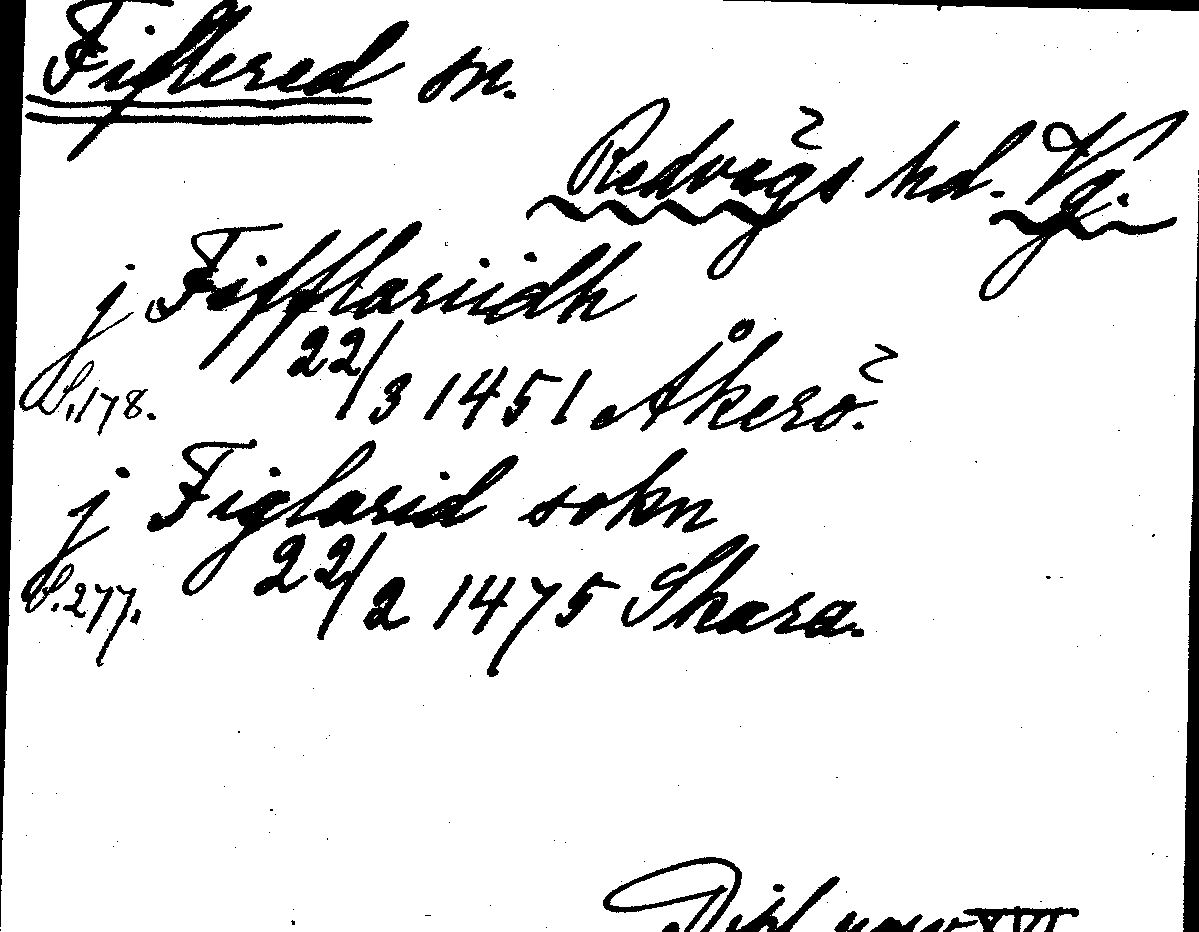 Fiflered sn.
Redvägs hd. Vg.
j Fifflariidh
S. 178. 22/3 1451 Åkerö.
j Figlarid sokn
S. 277. 22/2 1475 Skara.
Dipl